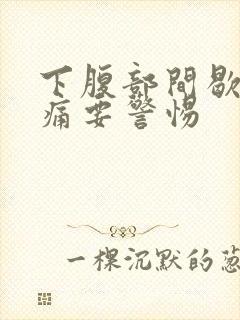 下腹部間歇
痛要警惕
一棵沉默的葱